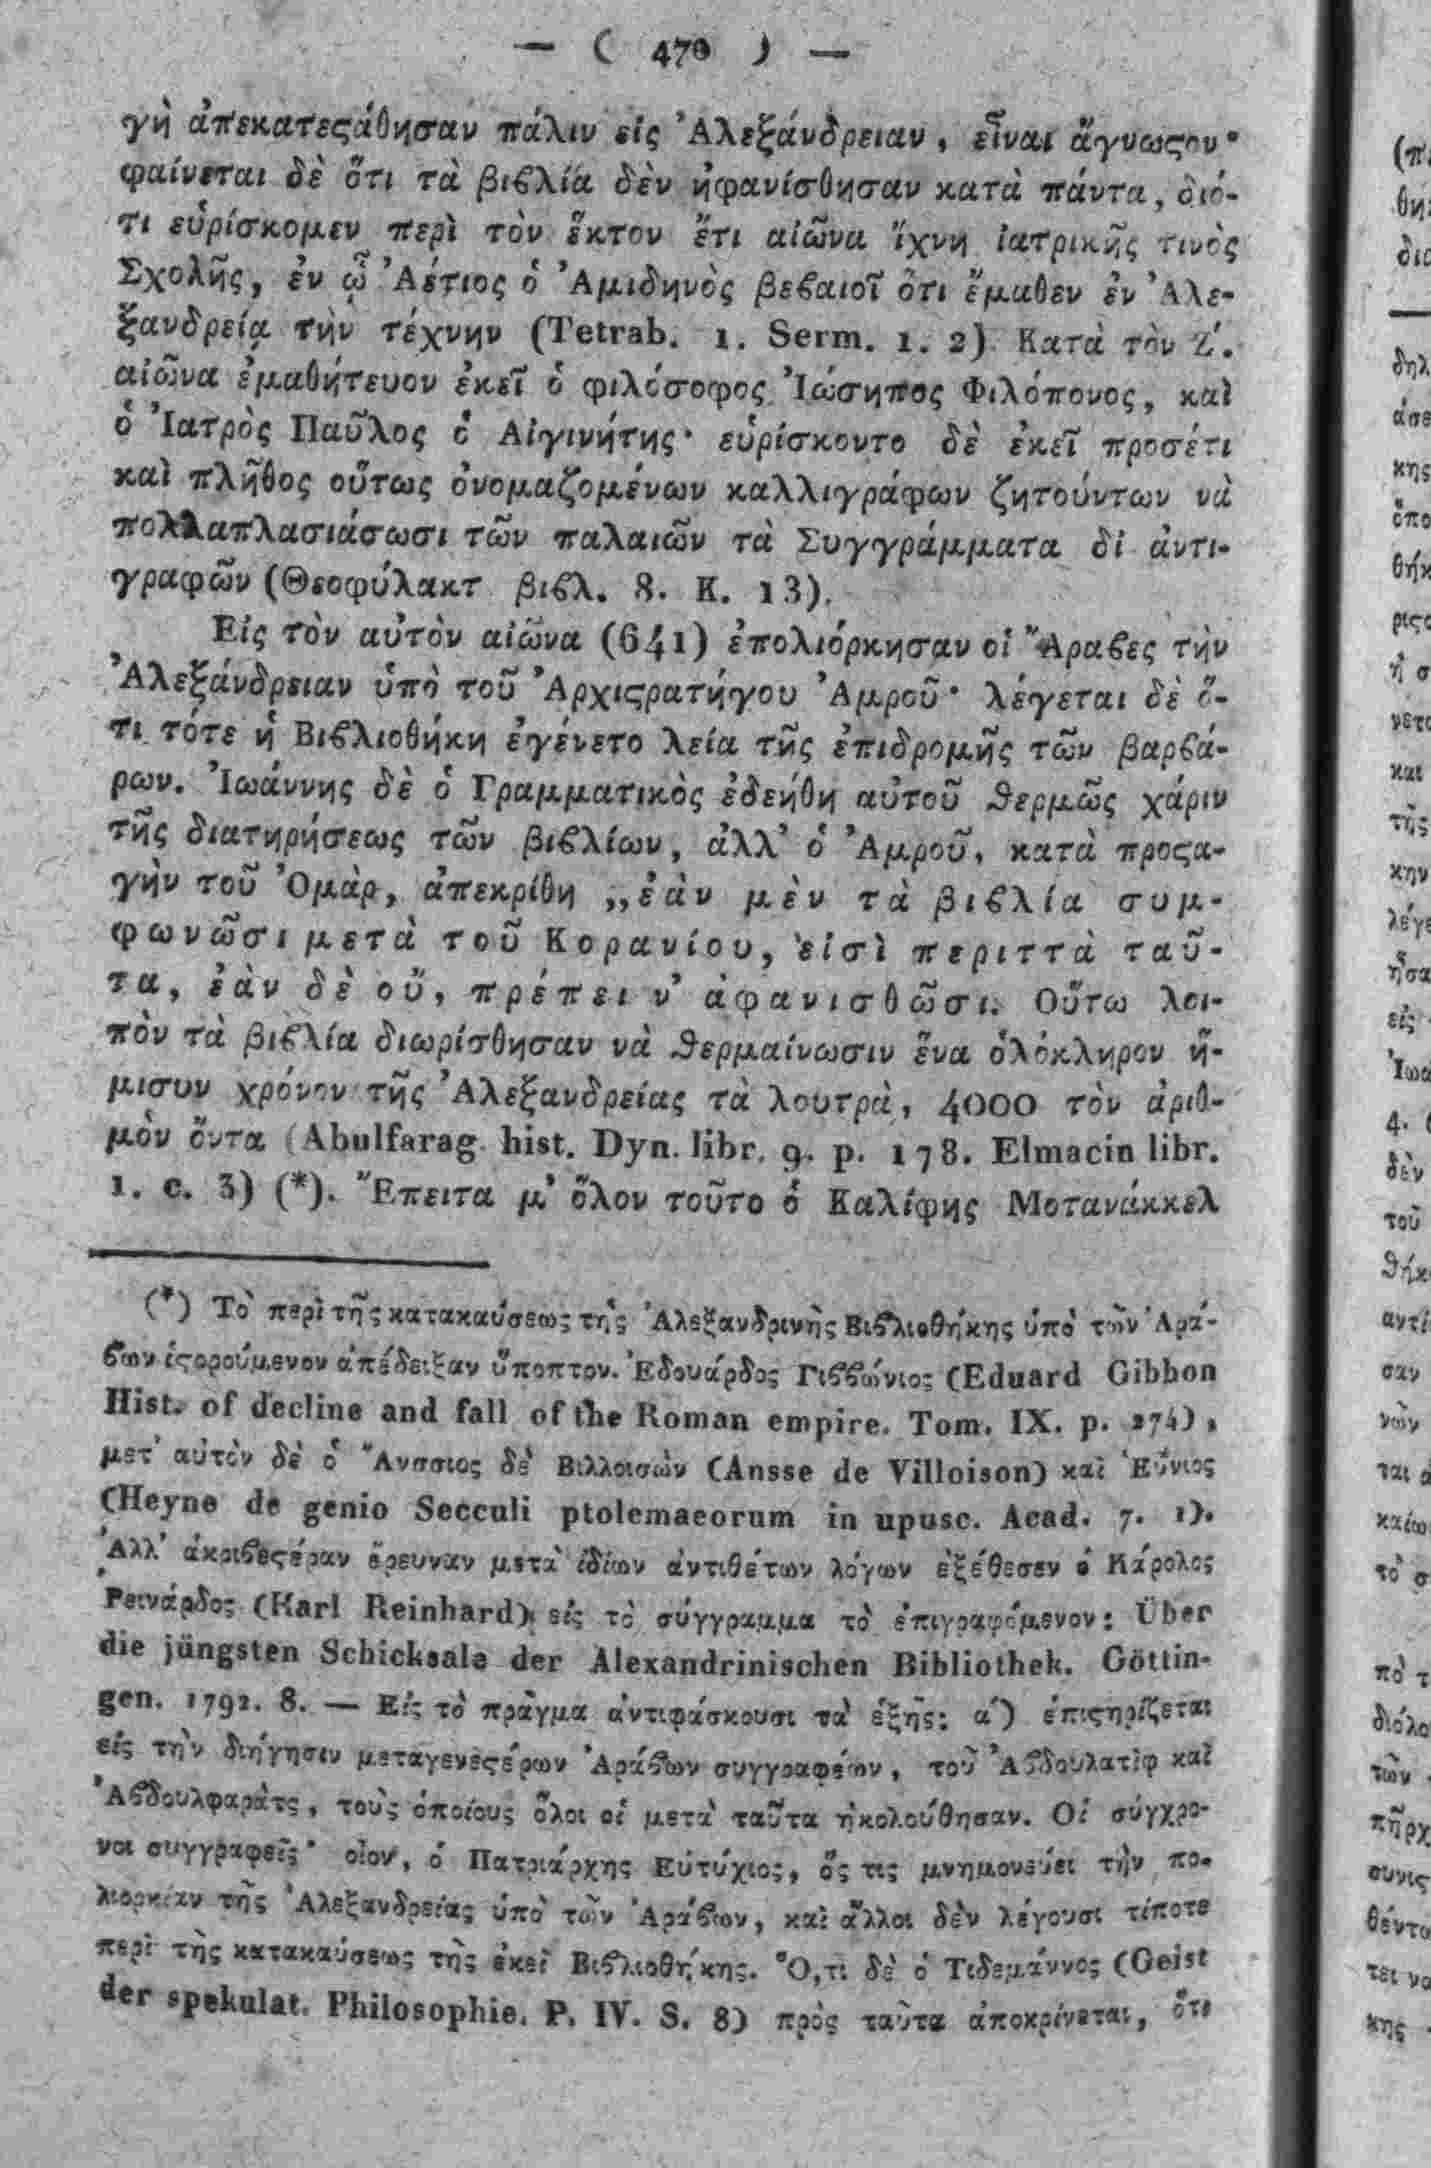 — ( 470 ) —
γὴ ἀπεκατεϛάθησαν πάλιν εἰς Ἀλεξάνδρειαν, εἶναι ἄγνωϛον·
φαίνεται δὲ ὅτι τὰ βιϐλία δὲν ἠφανίσθησαν κατὰ πάντα, διό-
τι εὑρίσκομεν περὶ τὸν ἕκτον ἔτι αἰῶνα ἴχνη ἰατρικῆς τινὸς
Σχολῆς, ἐν ᾧ Ἀέτιος ὁ Ἀμιδηνὸς βεϐαιοῖ ὅτι ἔμαθεν ἐν Ἀλε-
ξανδρείᾳ τὴν τέχνην (Tetrab. 1. Serm. 1. 2) Κατὰ τὸν Ζ΄.
αἰῶνα ἐμαθήτευον ἐκεῖ ὁ φιλόσοφος Ἰώσηπος Φιλόπονος, καὶ
ὁ Ἰατρὸς Παῦλος ὁ Αἰγινήτης· εὑρίσκοντο δὲ ἐκεῖ προσέτι
καὶ πλῆθος οὕτως ὀνομαζομένων καλλιγράφων ζητούντων νὰ
πολλαπλασιάσωσι τῶν παλαιῶν τὰ Συγγράμματα δἰ ἀντι-
γραφῶν (Θεοφύλακτ βιϐλ. 8. Κ. 13).
Εἰς τὸν αὐτὸν αἰῶνα (641) ἐπολιόρκησαν οἱ Ἄραϐες τὴν
Ἀλεξάνδρειαν ὑπὸ τοῦ Ἀρχιϛρατήγου Ἀμροῦ· λέγεται δὲ ὅ-
τι τότε ἡ Βιϐλιοθήκη ἐγένετο λεία τῆς ἐπιδρομῆς τῶν βαρϐά-
ρων. Ἰωάννης δὲ ὁ Γραμματικὸς ἐδεήθη αὐτοῦ ϑερμῶς χάριν
τῆς διατηρήσεως τῶν βιϐλίων, ἀλλ' ὁ Ἀμροῦ, κατὰ προϛα-
γὴν τοῦ Ὀμὰρ, ἀπεκρίθη ,,ἐὰν μὲν τὰ βιϐλία συμ-
φωνῶσι μετὰ τοῦ Κορανίου, εἰσὶ περιττὰ ταῦ-
τα, ἐὰν δὲ οὔ, πρέπει ν' ἀφανισθῶσι. Οὕτω λοι-
πὸν τὰ βιϐλία διωρίσθησαν νὰ ϑερμαίνωσιν ἕνα ὁλόκληρον ἥ-
μισυν χρόνον τῆς Ἀλεξανδρείας τὰ λουτρὰ, 4000 τὸν ἀριθ-
μὸν ὄντα (Abulfarag. hist. Dyn. libr. 9. p. 178. Elmacin libr.
1. c. 3) (*). Ἔπειτα μ' ὅλον τοῦτο ὁ Καλίφης Μοτανάκκελ
(*) Τὸ περὶ τῆς κατακαύσεως τῆς Ἀλεξανδρινῆς Βιϐλιοθήκης ὑπὸ τῶν Ἀρά-
ϐων ἱϛορούμενον ἀπέδειξαν ὕποπτον. Ἐδουάρδος Γιϐϐώνιος (Eduard Gibbon
Hist. of decline and fall of the Roman empire. Tom. IX. p. 274),
μετ' αὐτὸν δὲ ὁ Ἄνσσιος δὲ Βιλλοισὼν (Ansse de Villoison) καὶ Ἑΰνιος
(Heyne de genio Secculi ptolemaeorum in upusc. Acad. 7. 1).
Ἀλλ' ἀκριϐεϛέραν ἔρευναν μετὰ ἰδίων ἀντιθέτων λόγων ἐξέθεσεν ὁ Κάρολος
Ῥεινάρδος (Karl Reinhard) εἰς τὸ σύγγραμμα τὸ ἐπιγραφόμενον: Über
die jüngsten Schicksale der Alexandrinischen Bibliothek. Göttin-
gen. 1792. 8. — Εἰς τὸ πρᾶγμα ἀντιφάσκουσι τὰ ἑξῆς: α΄) ἐπιϛηρίζεται
εἰς τὴν διήγησιν μεταγενεϛέρων Ἀράϐων συγγραφέων, τοῦ Ἀϐδουλατὶφ καὶ
Ἀϐδουλφαρὰτς, τοὺς ὁποίους ὅλοι οἱ μετὰ ταῦτα ἠκολούθησαν. Οἱ σύγχρο-
νοι συγγραφεῖς· οἷον, ὁ Πατριάρχης Εὐτύχιος, ὅς τις μνημονεύει τὴν πο-
λιορκίαν τῆς Ἀλεξανδρείας ὑπὸ τῶν Ἀράϐων, καὶ ἄλλοι δὲν λέγουσι τίποτε
περὶ τῆς κατακαύσεως τῆς ἐκεῖ Βιϐλιοθήκης. Ὅ,τι δὲ ὁ Τιδεμάννος (Geist
der spekulat. Philosophie. P. IV. S. 8) πρὸς ταῦτα ἀποκρίνεται, ὅτι